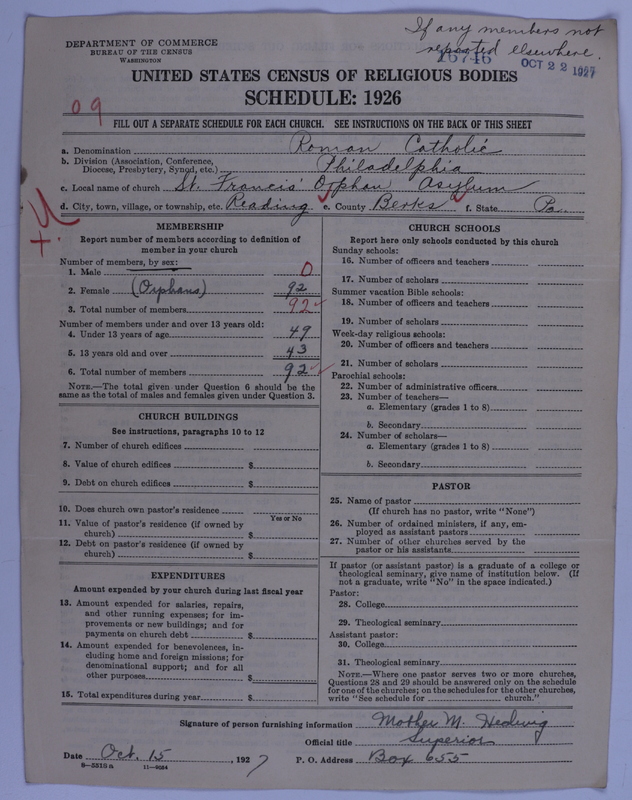 If any members not
reported elsewhere.
DEPARTMENT OF COMMERCE
BUREAU OF THE CENSUS
WASHINGTON
16746
OCT 22 1927
UNITED STATES CENSUS OF RELIGIOUS BODIES
SCHEDULE: 1926
09
FILL OUT A SEPARATE SCHEDULE FOR EACH CHURCH. SEE INSTRUCTIONS ON THE BACK OF THIS SHEET
a. Denomination Roman Catholic
b. Division (Association, Conference, Diocese, Presbytery, Synod, etc.) Philadelphia
c. Local name of church St. Francis' Orphan Asylum
d. City, town, village, or township, etc. Reading e. County Berks f. State Pa.
MEMBERSHIP
Report number of members according to definition of
member in your church
Number of members, by sex:
1. Male 0
2. Female (Orphans) 92
3. Total number of members 92
Number of members under and over 13 years old:
4. Under 13 years of age 49
5. 13 years old and over 43
6. Total number of members 92
NOTE.—The total given under Question 6 should be the
same as the total of males and females given under Question 3.
CHURCH BUILDINGS
See instructions, paragraphs 10 to 12
7. Number of church edifices
8. Value of church edifices $
9. Debt on church edifices $
10. Does church own pastor's residence
Yes or No
11. Value of pastor's residence (if owned by
church) $
12. Debt on pastor's residence (if owned by
church) $
EXPENDITURES
Amount expended by your church during last fiscal year
13. Amount expended for salaries, repairs,
and other running expenses; for im-
provements or new buildings; and for
payments on church debt $
14. Amount expended for benevolences, in-
cluding home and foreign missions; for
denominational support; and for all
other purposes $
15. Total expenditures during year $
CHURCH SCHOOLS
Report here only schools conducted by this church
Sunday schools:
16. Number of officers and teachers
17. Number of scholars
Summer vacation Bible schools:
18. Number of officers and teachers
19. Number of scholars
Week-day religious schools:
20. Number of officers and teachers
21. Number of scholars
Parochial schools:
22. Number of administrative officers
23. Number of teachers—
a. Elementary (grades 1 to 8)
b. Secondary
24. Number of scholars—
a. Elementary (grades 1 to 8)
b. Secondary
PASTOR
25. Name of pastor
(If church has no pastor, write "None")
26. Number of ordained ministers, if any, em-
ployed as assistant pastors
27. Number of other churches served by the
pastor or his assistants
If pastor (or assistant pastor) is a graduate of a college or
theological seminary, give name of institution below. (If
not a graduate, write "No" in the space indicated.)
Pastor:
28. College
29. Theological seminary
Assistant pastor:
30. College
31. Theological seminary
NOTE.—Where one pastor serves two or more churches,
Questions 28 and 29 should be answered only on the schedule
for one of the churches; on the schedules for the other churches,
write "See schedule for church."
Signature of person furnishing information Mother M. Hedwig
Official title Superior
Date Oct. 15, 1927 P. O. Address Box 655
8-5313a 11-9024